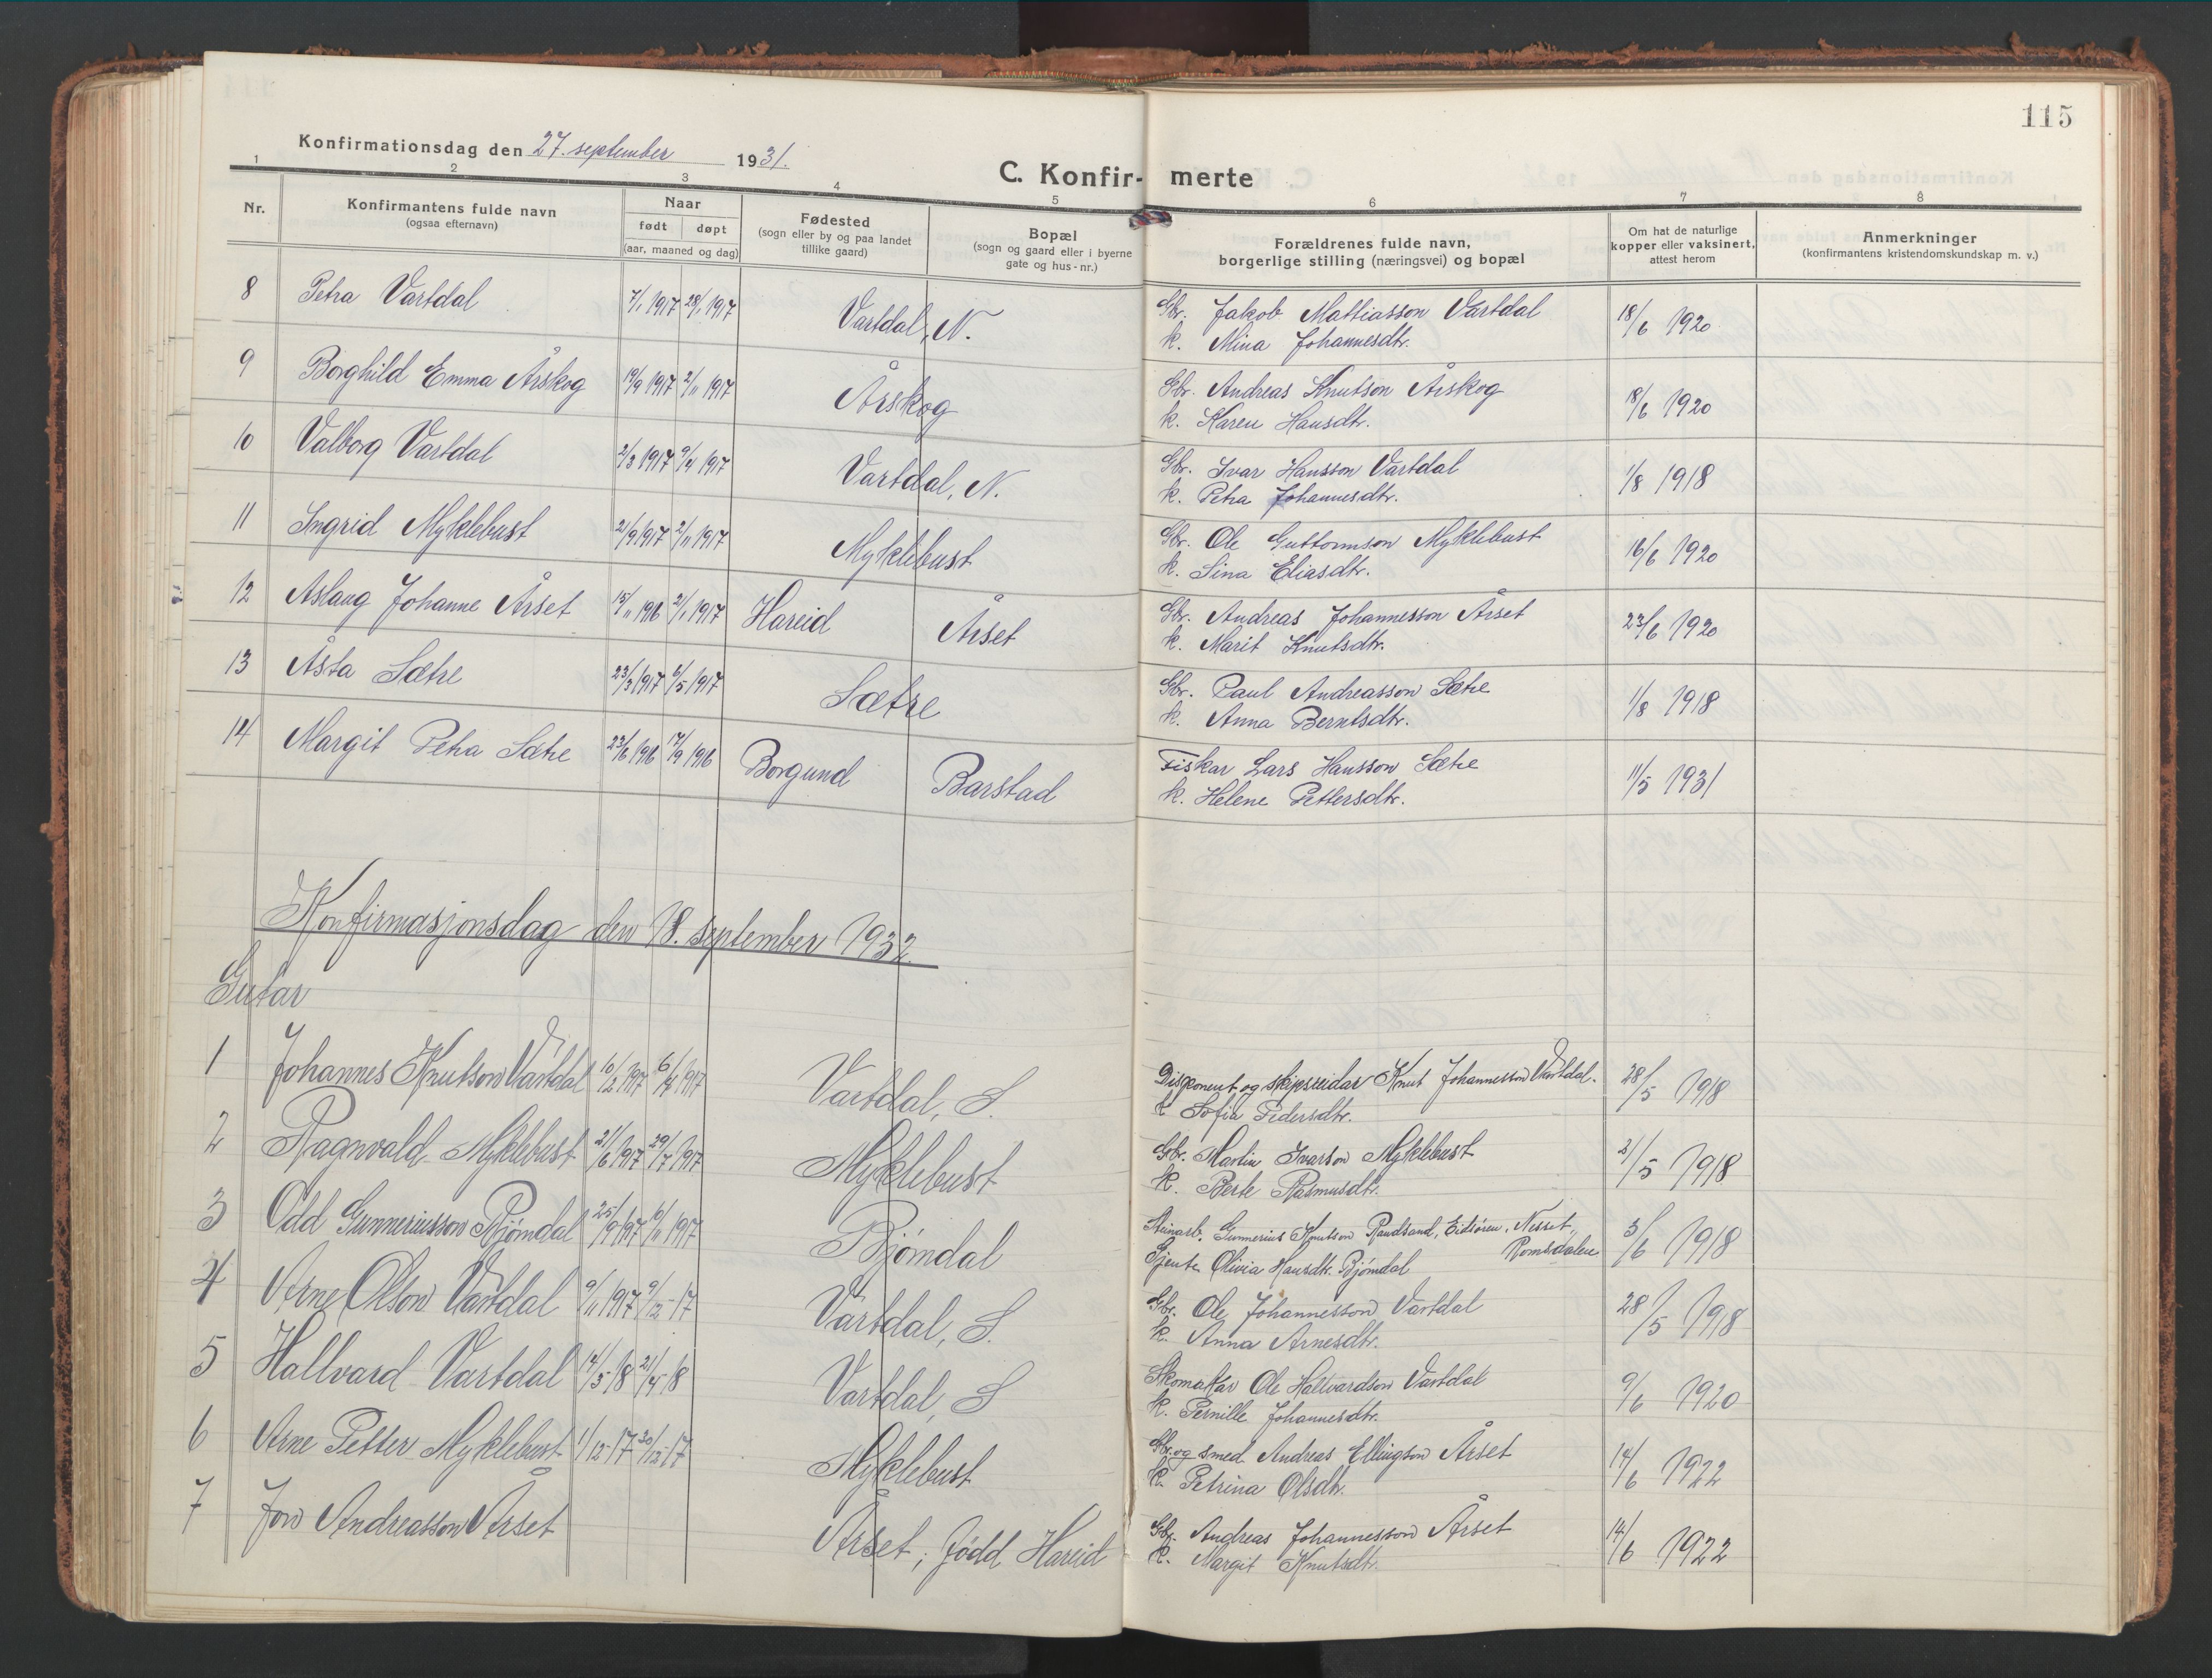 115
Konfirmationsdag den 27. september 1931.
C. Konfir- merte
1 2 3 4 5 6 7 8
Nr.
Konfirmantens fulde navn
(ogsaa efternavn)
Naar
født døpt
(aar, maaned og dag)
Fødested
(sogn eller by og paa landet
tillike gaard)
Bopæl
(sogn og gaard eller i byerne
gate og hus-nr.)
Forældrenes fulde navn,
borgerlige stilling (næringsvei) og bopæl
Om hat de naturlige
kopper eller vaksinert,
attest herom
Anmerkninger
(konfirmantens kristendomskundskap m. v.)
8 Petra Vartdal 7/1 1917 28/1 1917 Vartdal, N. Gbr. Jakob Mattiasson Vartdal 18/6 1920
k. Mina Johannesdtr.
9 Borghild Emma Årskog 19/9 1917 2/11 1917 Årskog Gbr. Andreas Knutson Årskog 18/6 1920
k. Karen Hansdtr.
10 Valborg Vartdal 2/3 1917 9/4 1917 Vartdal, N. Gbr. Ivar Hansson Vartdal 1/8 1918
k. Petra Johannesdtr.
11 Ingrid Myklebust 2/9 1917 2/11 1917 Myklebust Gbr. Ole Guttormson Myklebust 16/6 1920
k. Sina Eliasdtr.
12 Aslaug Johanne Årset 15/11 1916 2/1 1917 Hareid Årset Gbr. Andreas Johannesson Årset 23/6 1920
k. Marit Knutsdtr.
13 Åsta Sætre 23/3 1917 6/5 1917 Sætre Gbr. Paul Andreasson Sætre 1/8 1918
k. Anna Berntsdtr.
14 Margit Petra Sætre 23/6 1916 17/9 1916 Borgund Barstad Fiskar Lars Hansson Sætre 11/5 1931
k. Helene Pettersdtr.
Konfirmasjonsdag den 18. september 1932.
Gutar
1 Johannes Knutson Vartdal 10/2 1917 6/4 1917 Vartdal, S. Disponent og skipsreidar Knut Johannesson Vartdal. 28/5 1918
k Sofia Pedersdtr.
2 Ragnvald Myklebust 21/6 1917 29/7 1917 Myklebust Gbr. Martin Ivarson Myklebust 21/5 1918
k. Berte Rasmusdtr.
3 Odd Gunneriusson Bjømdal 25/9 1917 16/11 1917 Bjømdal Steinarb. Gunnerius Knutson Raudsand, Eidsøren, Nesset, 3/6 1918
Romsdalen
Gjente Olivia Hansdtr. Bjømdal
4 Arne Olson Vartdal 9/11 1917 9/12-17 Vartdal, S. Gbr. Ole Johannesson Vartdal 28/5 1918
k. Anna Arnesdtr.
5 Hallvard Vartdal 14/3-18 21/4 18 Vartdal, S Skomakar Ole Hallvardson Vartdal 9/6 1920
k. Pernille Johannesdtr.
6 Arne Petter Myklebust 1/12-17 30/12-17 Myklebust Gbr. og smed Andreas Ellingson Årset 14/6 1922
k. Petrina Olsdtr.
7 Jon Andreasson Årset Årset; fødd Hareid Gbr. Andreas Johannesson Årset 14/6 1922
k. Margit Knutsdtr.